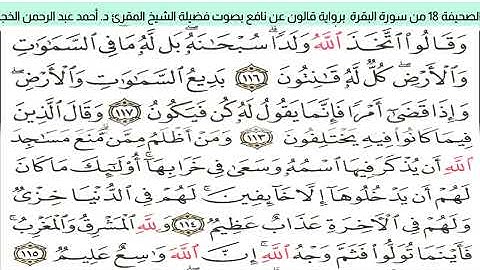 الصحيفة 18 من سورة البقرة برواية قالون عن نافع بصوت فضيلة الشيخ المقرئ د. أحمد عبد الرحمن
وَقَالُوا اتَّخَذَ اللَّهُ وَلَدًا سُبْحَٰنَهُۥ بَل لَّهُۥ مَا فِي السَّمَٰوَٰتِ
وَالْأَرْضِ كُلٌّ لَّهُۥ قَٰنِتُونَ ١١٦ بَدِيعُ السَّمَٰوَٰتِ وَالْأَرْضِ
وَإِذَا قَضَىٰ أَمْرًا فَإِنَّمَا يَقُولُ لَهُۥ كُن فَيَكُونُ ١١٧ وَقَالَ الَّذِينَ
فِيمَا كَانُوا فِيهِ يَخْتَلِفُونَ ١١٣ وَمَنْ أَظْلَمُ مِمَّن مَّنَعَ مَسَٰجِدَ
اللَّهِ أَن يُذْكَرَ فِيهَا اسْمُهُۥ وَسَعَىٰ فِي خَرَابِهَا أُوْلَٰٓئِكَ مَا كَانَ
لَهُمْ أَن يَدْخُلُوهَا إِلَّا خَآئِفِينَ لَهُمْ فِي الدُّنْيَا خِزْيٌ
وَلَهُمْ فِي الْأَخِرَةِ عَذَابٌ عَظِيمٌ ١١٤ وَلِلَّهِ الْمَشْرِقُ وَالْمَغْرِبُ
فَأَيْنَمَا تُوَلُّوا فَثَمَّ وَجْهُ اللَّهِ إِنَّ اللَّهَ وَٰسِعٌ عَلِيمٌ ١١٥